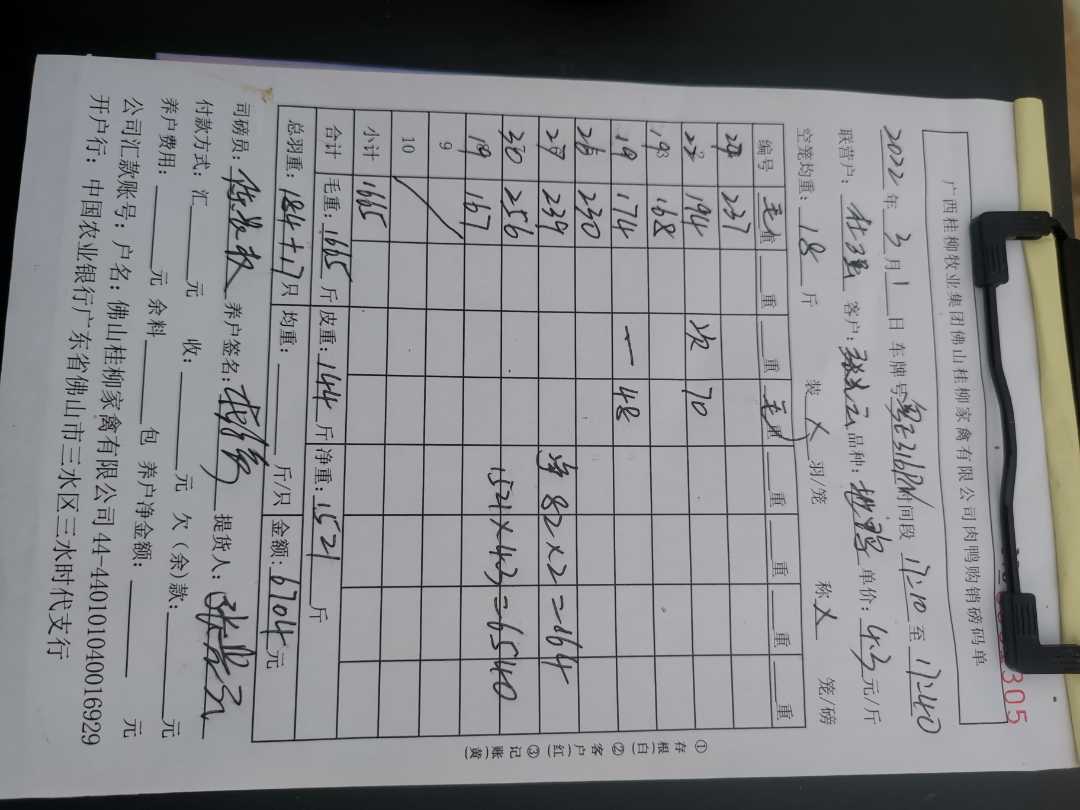 305
广西桂柳牧业集团佛山桂柳家禽有限公司肉鸭购销磅码单
2022年3月1日 车牌号 时间段 17:10至17:40
联营户: 客户: 品种: 单价:4.3元/斤
空笼均重:18斤 装 X 羽/笼 称 X 笼/磅
编号 毛重 重 重 毛重 重 重 重 重
237
194 次 70
168
19 174 一 48
26 230
239 净 82×2=164
30 256 1521×4.3=6540
19 167
9
10
小计 1665
合计 毛重:1665斤 皮重:144斤 净重:1521斤
总羽重:184+17只 均重: 斤/只 金额:6704元
司磅员: 养户签名: 提货人:
付款方式:汇 元 收: 元 欠(余)款: 元
养户费用: 元 余料 包 养户净金额: 元
公司汇款账号:户名:佛山桂柳家禽有限公司44-440101040016929
开户行:中国农业银行广东省佛山市三水区三水时代支行
①存根(白) ②客户(红) ③记账(黄)